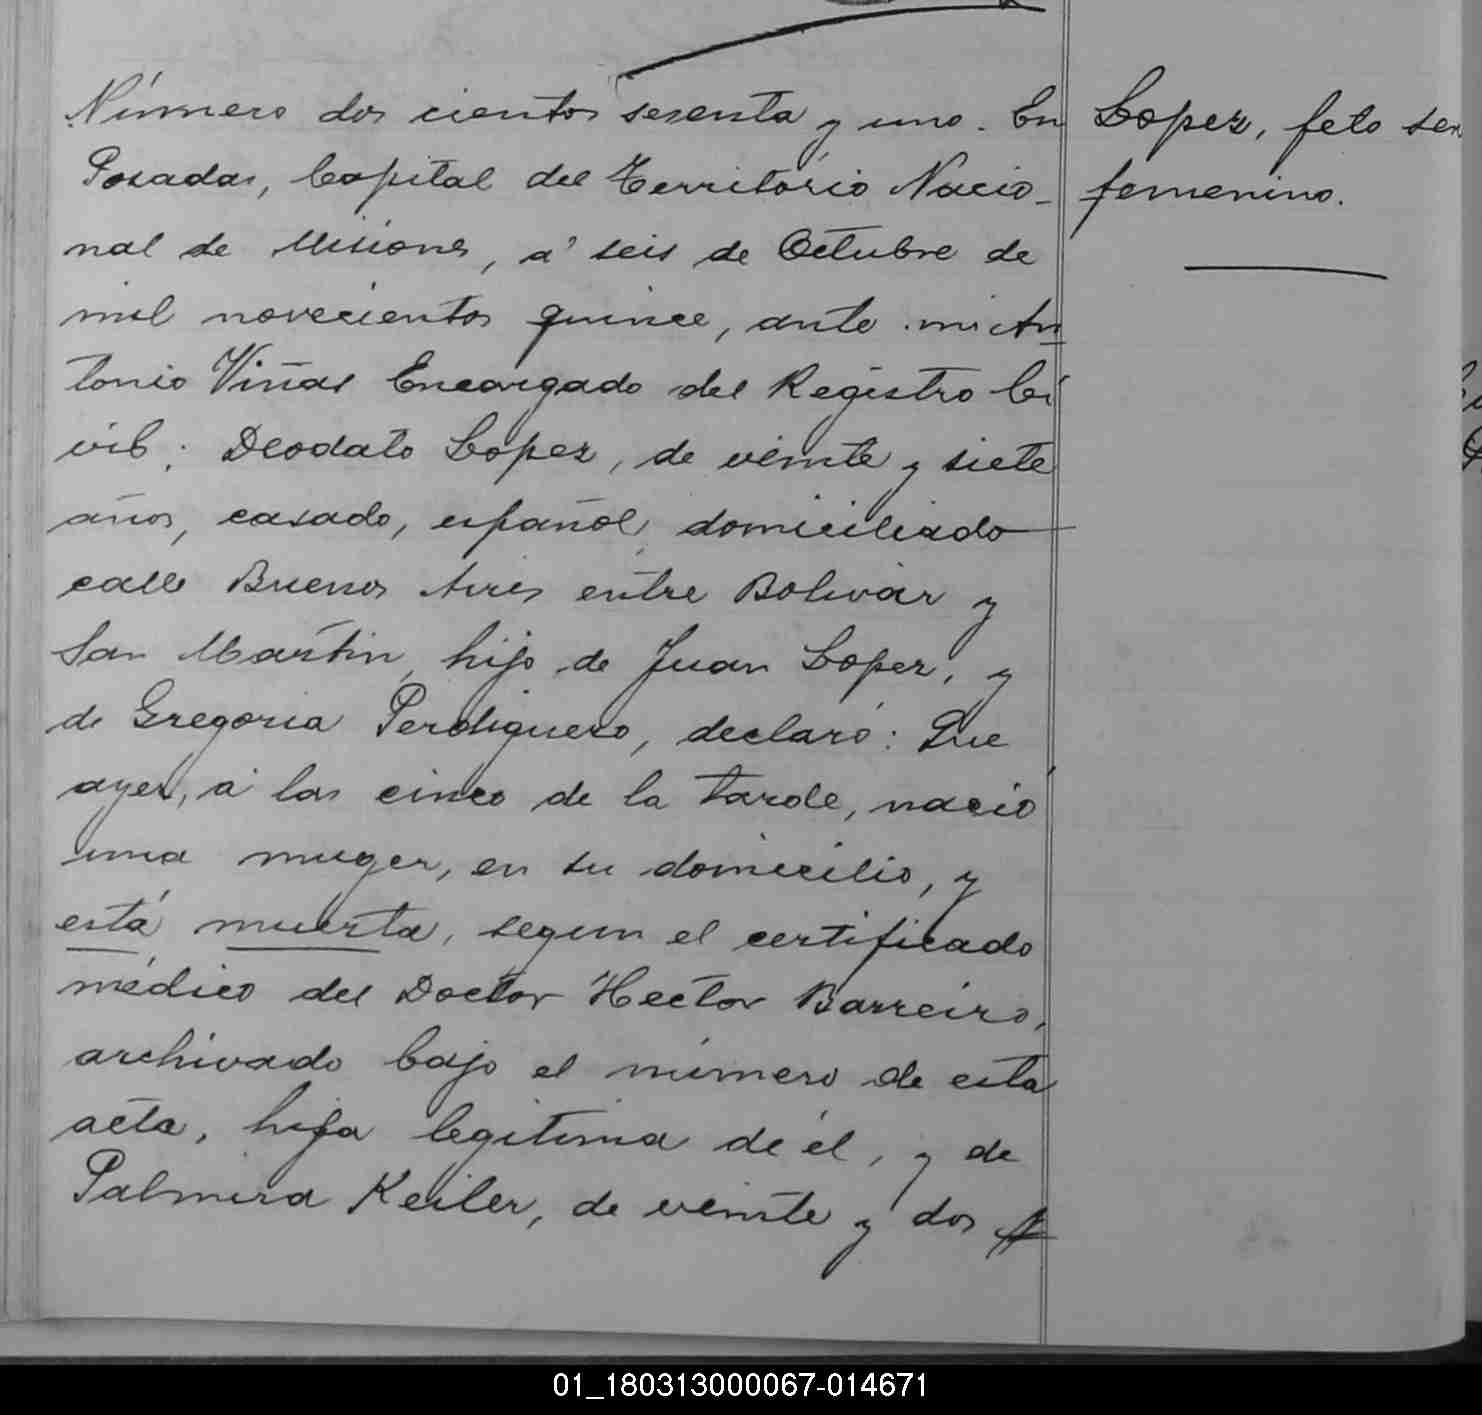 Número dos cientos sesenta y uno. En
Posadas, Capital del Territorio Nacio-
nal de Misiones, á seis de Octubre de
mil novecientos quince, ante mi An
tonio Viñas Encargado del Registro Ci
vil; Deodato Lopez, de veinte y siete
años, casado, español, domiciliado
calle Buenos Aires entre Bolivar y
San Martin, hijo de Juan Lopez, y
de Gregoria Perdiguero, declaró: Que
ayer, á las cinco de la tarde, nació
una muger, en su domicilio, y
está muerta, segun el certificado
médico del Doctor Hector Barreiro,
archivado bajo el número de esta
acta, hija legitima de él, y de
Palmira Keiler, de veinte y dos
Lopez, feto sex
femenino.
01_180313000067-014671